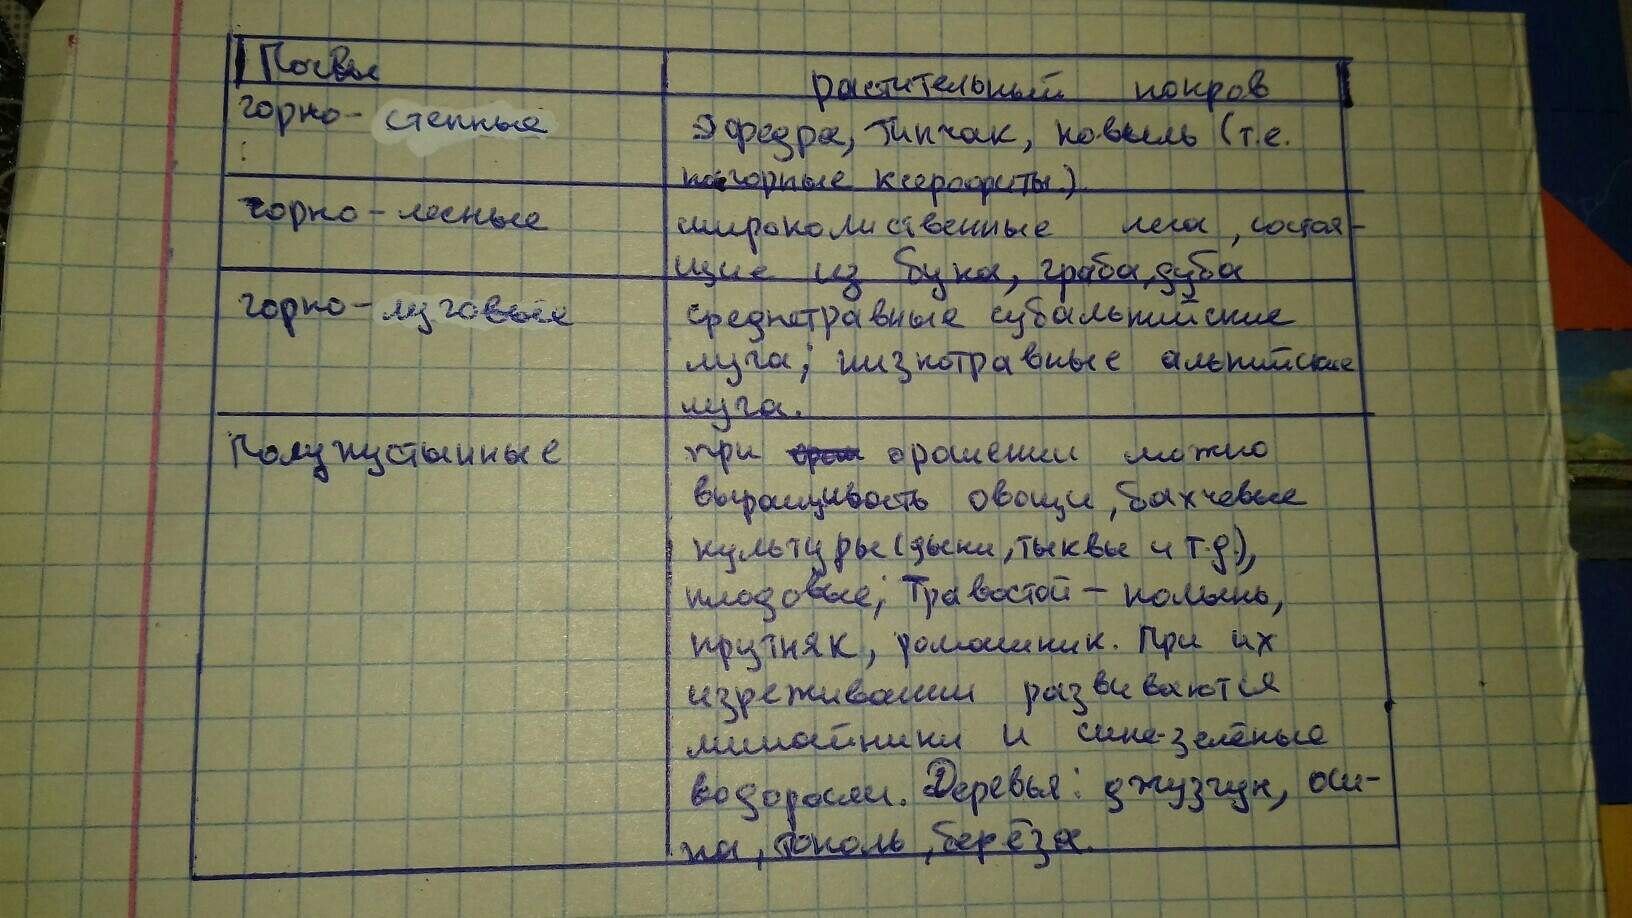 Почвы
растительный покров
горно-степные
эфедра, типчак, ковыль (т.е.
нагорные ксерофиты.)
горно-лесные
широколиственные леса, состоя-
щие из бука, граба, дуба
горно-луговые
среднетравные субальпийские
луга; низкотравные альпийские
луга.
Полупустынные
при орошении можно
выращивость овощи, бахчевые
культуры (дыни, тыквы и т.д.),
плодовые; Травостой – полынь,
прутняк, ромашник. При их
изреживании развиваются
лишайники и сине-зелёные
водоросли. Деревья: джузгун, оси-
на, тополь, берёза.